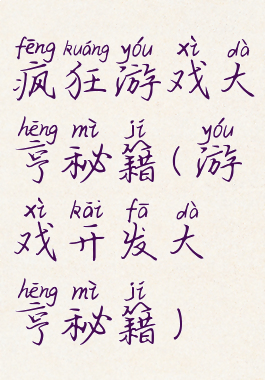 fēng kuáng yóu xì dà
疯狂游戏大
hēng mì jí yóu
亨秘籍(游
xì kāi fā dà
戏开发大
hēng mì jí
亨秘籍)